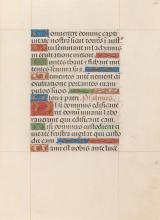 Conuertere domine capti
uitate nostra sicut torrens i aust
Qui seminant in lachrimis
in exultatione metent
Euntes ibant et flebant mit
tentes semina sua
Uenientes autem uenient cu
exultatione
patri Psalmus
Nisi dominus edificauerit
domum in uanum labo
rauerunt qui edificant eam
Nisi dominus custodierit ci
custodit
Uanum est uobis ante luce